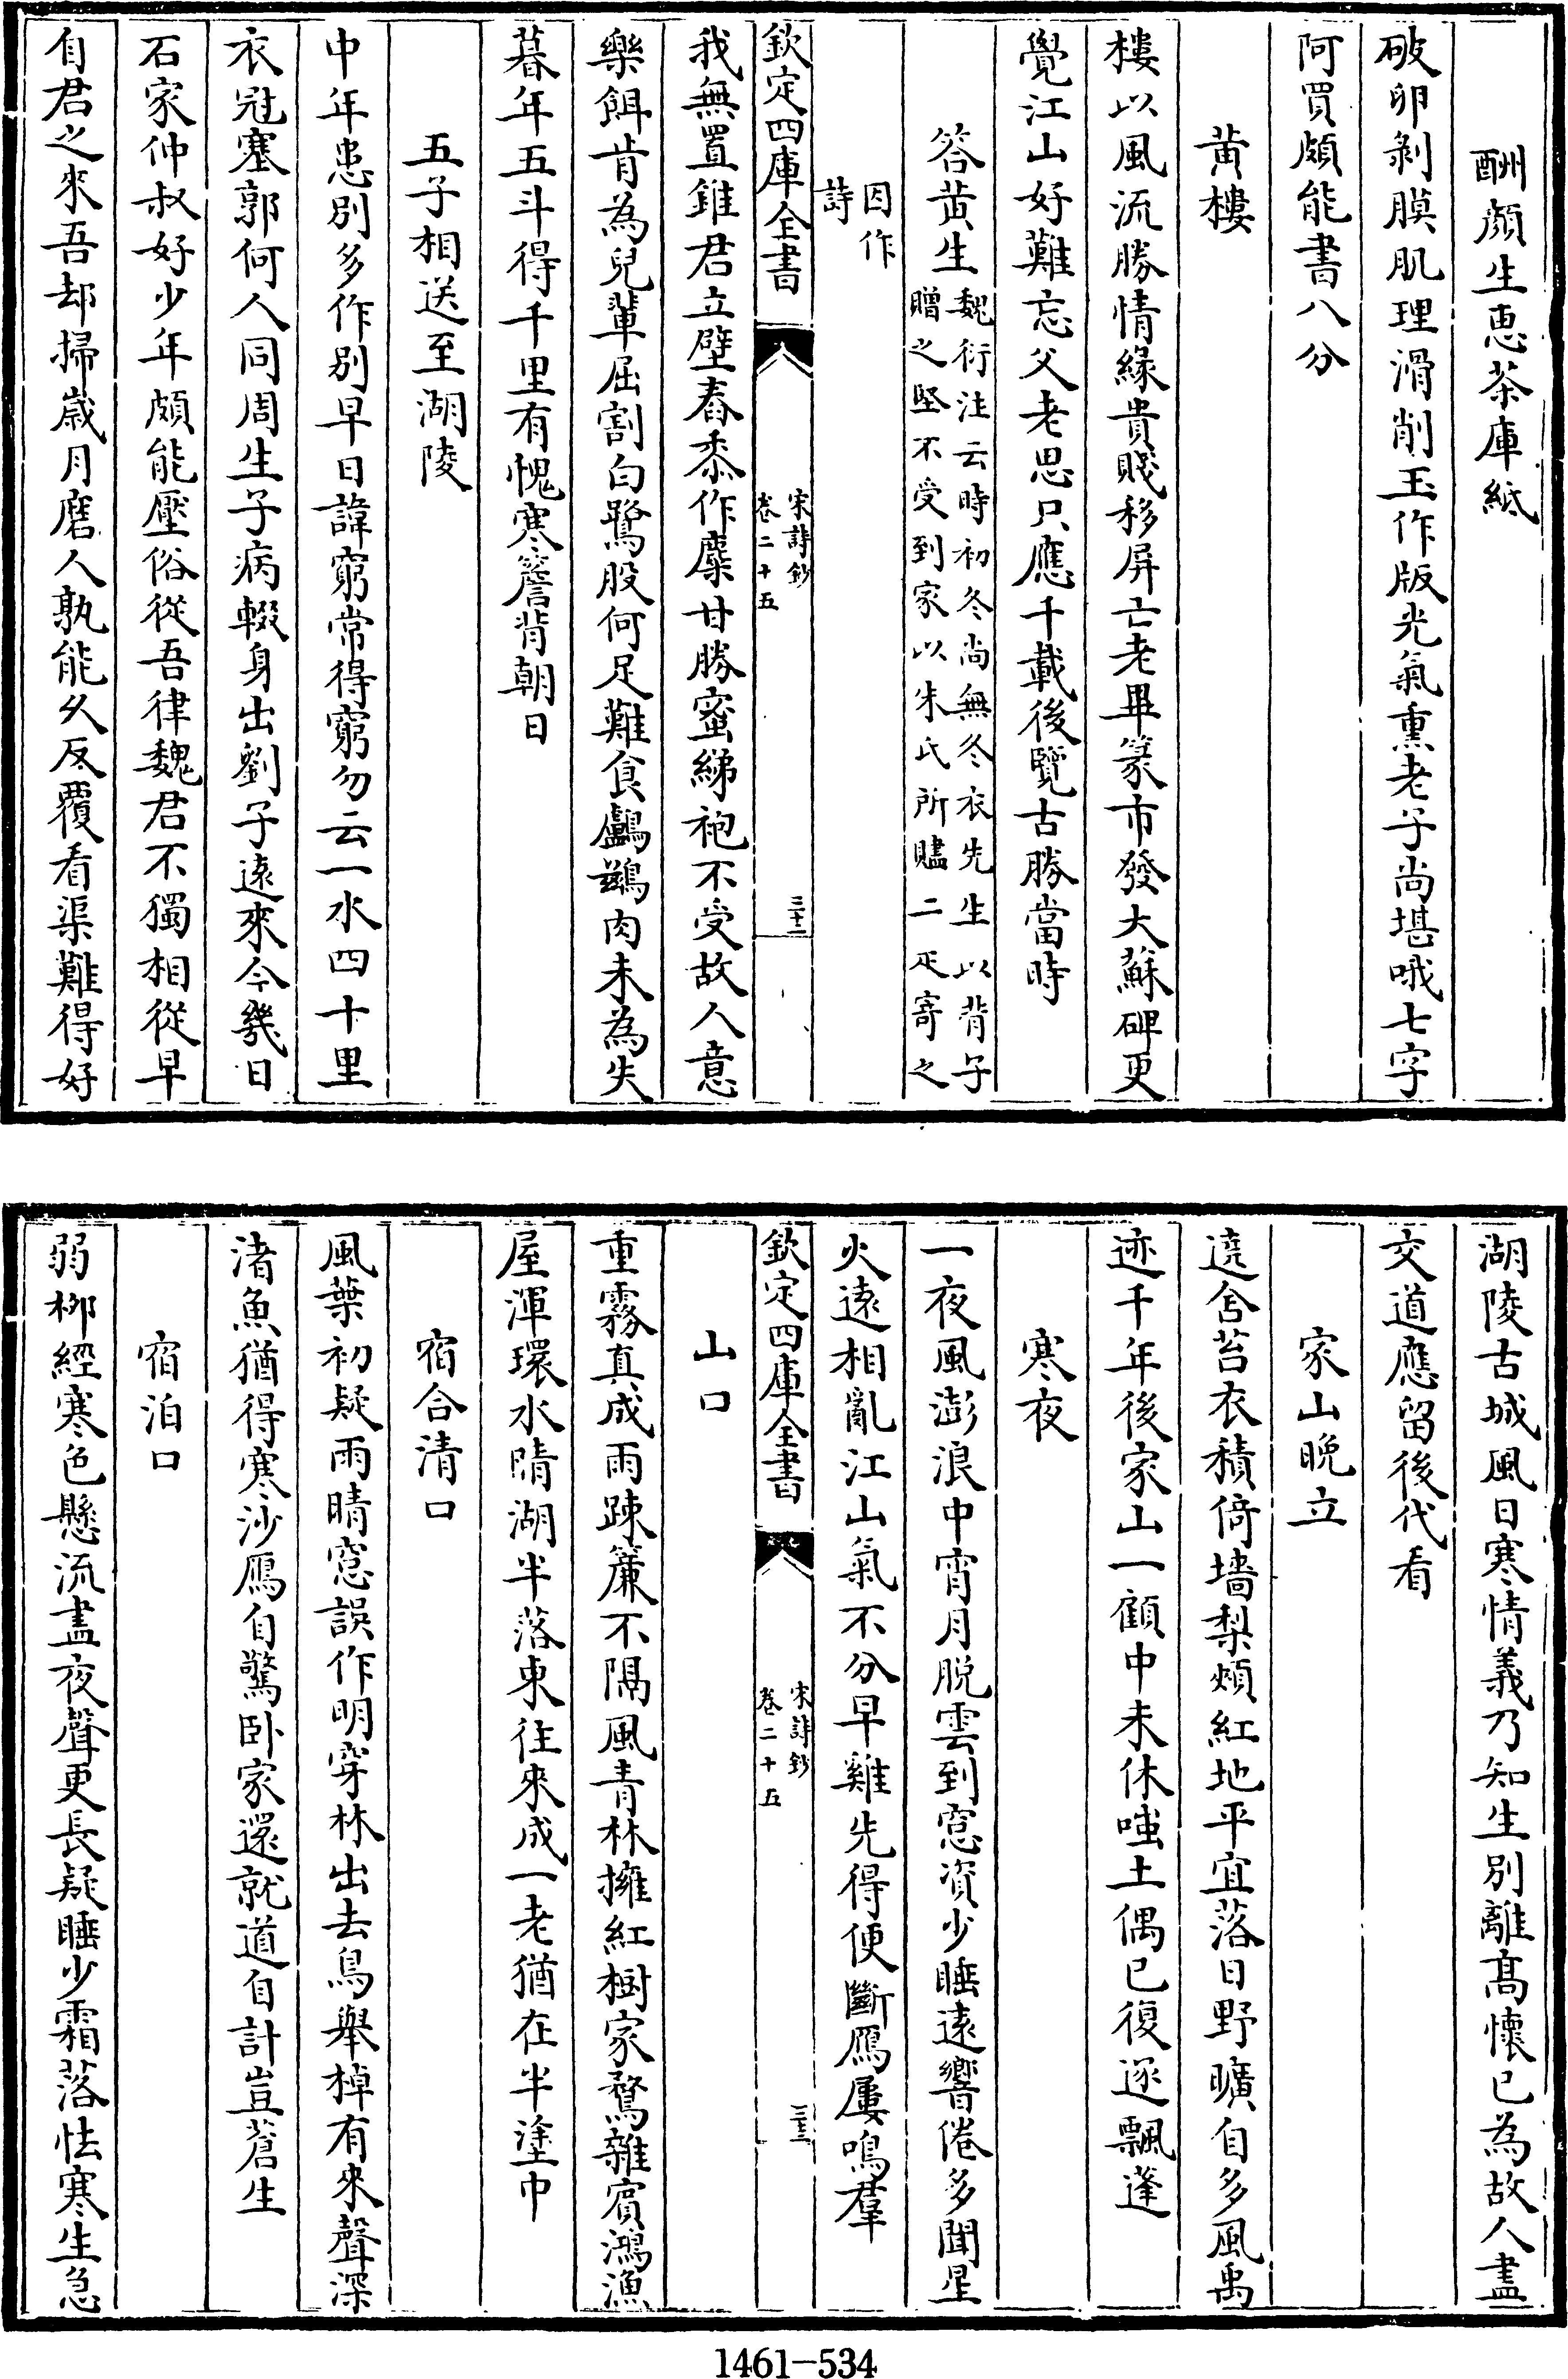 酬顔生恵茶庫紙
破卵剝膜肌理滑削玉作版光氣熏老子尚堪哦七字
阿買頗能書八分
黄樓
樓以風流勝情緣貴賤移屏亡老畢篆市發大蘇碑更
覺江山好難忘父老思只應千載後覽古勝當時
答黄生魏衍注云時初冬尚無冬衣先生以背子
贈之堅不受到家以朱氏所贐二疋寄之
因作
詩
欽定四庫全書
宋詩鈔
卷二十五
三十二
我無置錐君立壁舂黍作糜甘勝蜜綈袍不受故人意
樂餌肯為兒輩屈割白鷺股何足難食鸕鷀肉未為失
暮年五斗得千里有愧寒簷背朝日
五子相送至湖陵
中年患別多作別早日諱窮常得窮勿云一水四十里
衣冠塞郭何人同周生子病輟身出劉子遠來今幾日
石家仲叔好少年頗能壓俗從吾律魏君不獨相從早
自君之來吾却掃歲月磨人孰能久反覆看渠難得好
湖陵古城風日寒情義乃知生別離髙懷已為故人盡
交道應留後代看
家山晩立
遶舍苔衣積倚墻梨頰紅地平宜落日野曠自多風禹
迹千年後家山一顧中未休嗤土偶已復逐飄蓬
寒夜
一夜風澎浪中宵月脱雲到窓資少睡遠響倦多聞星
火遠相亂江山氣不分早雞先得便斷鴈屢鳴羣
欽定四庫全書
宋詩鈔
卷二十五
三十三
山口
重霧真成雨疎簾不隔風青林擁紅樹家鶩雜賓鴻漁
屋渾環水晴湖半落東往來成一老猶在半塗中
宿合清口
風葉初疑雨晴窓誤作明穿林出去鳥舉棹有來聲深
渚魚猶得寒沙鴈自驚卧家還就道自計豈蒼生
宿泊口
弱栁經寒色懸流盡夜聲更長疑睡少霜落怯寒生急
1461-534